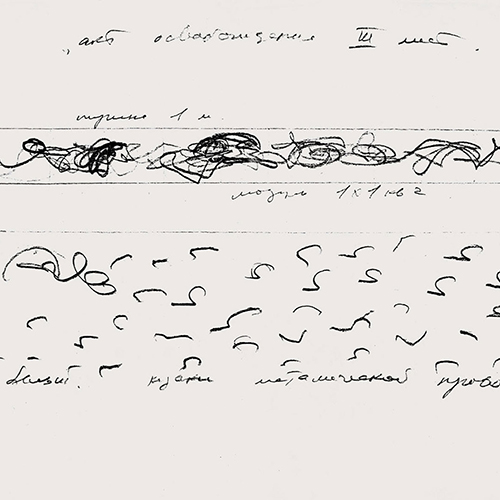 „акт освобождения III лист.
ширина 1 м.
модуль 1 х 1 кв
белый. куски металической прово